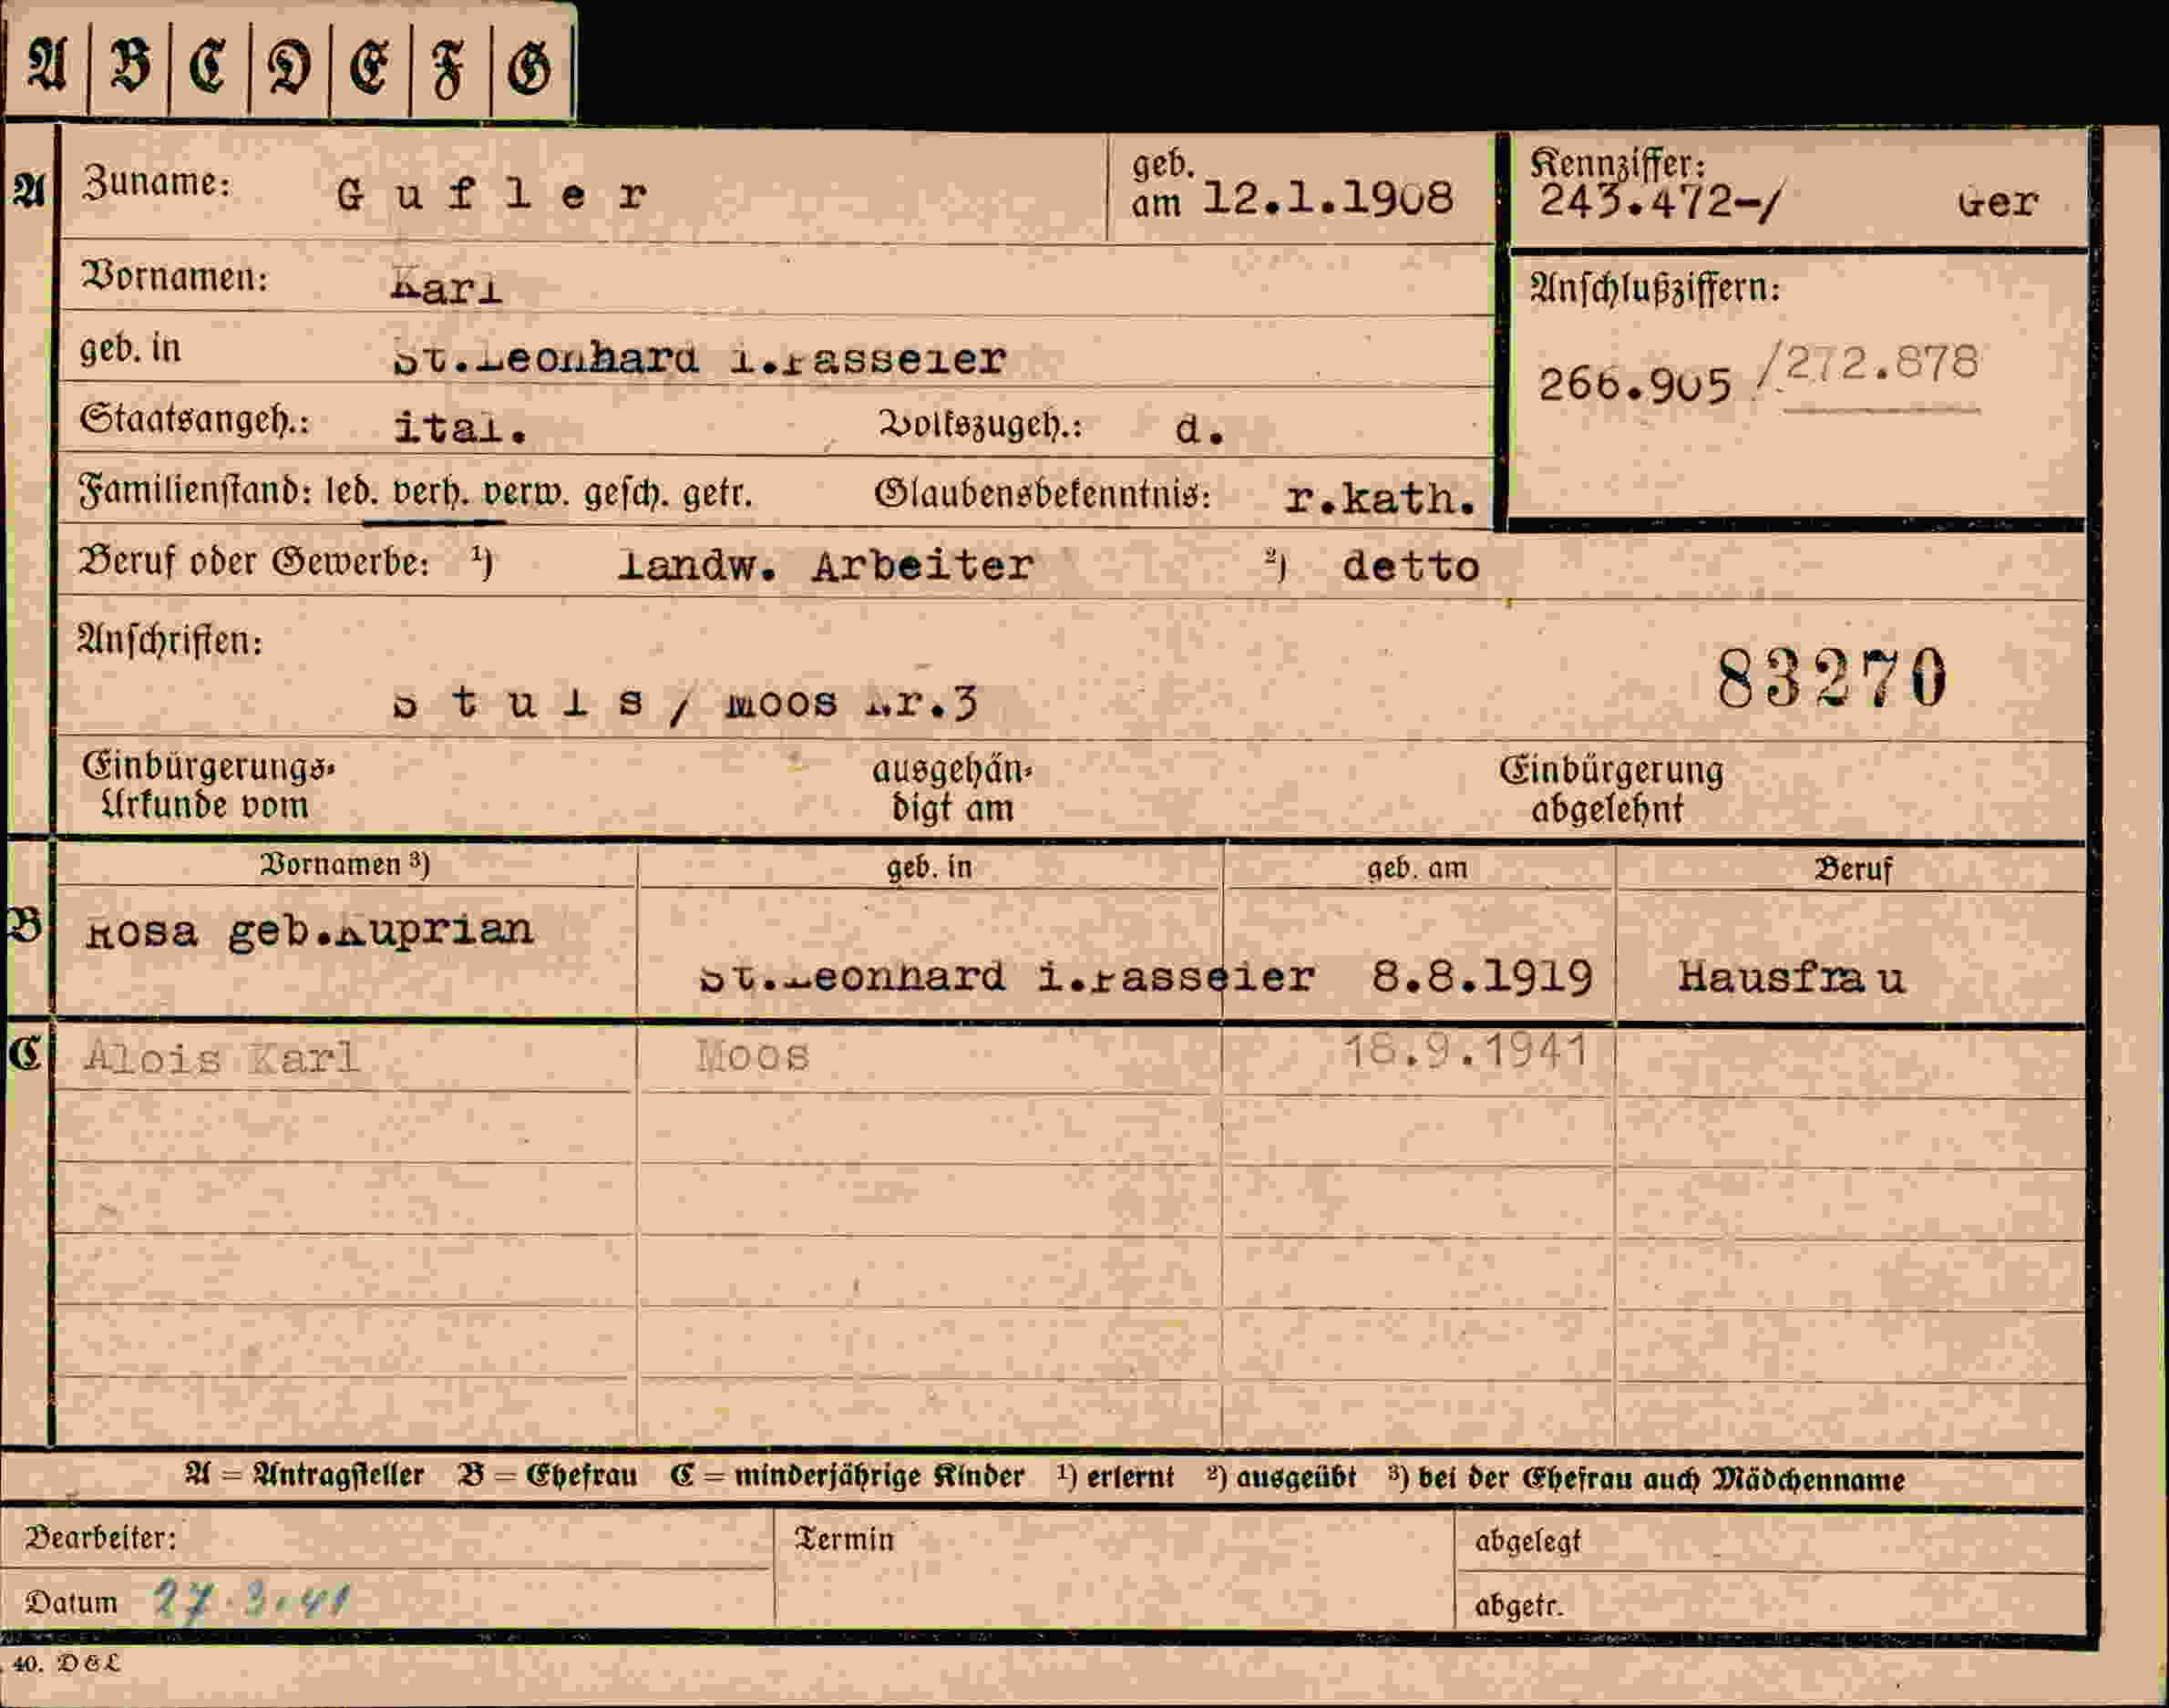 A B C D E F G
A Zuname: Gufler geb. am 12.1.1908 Kennziffer: 243.472-/ Ger
Vornamen: Karl Anschlußziffern:
geb. in St.Leonhard i.Passeier 266.905 /272.878
Staatsangeh.: ital. Volkszugeh.: d.
Familienstand: led. verh. verw. gesch. getr. Glaubensbekenntnis: r.kath.
Beruf oder Gewerbe: ¹) landw. Arbeiter ²) detto
Anschriften: 83270
Stuls / Moos Nr.3
Einbürgerungs- ausgehän- Einbürgerung
Urkunde vom digt am abgelehnt
Vornamen ³) geb. in geb. am Beruf
B Rosa geb.Kuprian
St.Leonhard i.Passeier 8.8.1919 Hausfrau
C Alois Karl Moos 18.9.1941
A = Antragsteller B = Ehefrau C = minderjährige Kinder ¹) erlernt ²) ausgeübt ³) bei der Ehefrau auch Mädchenname
Bearbeiter: Termin abgelegt
Datum 27.3.41 abgetr.
40. D&L